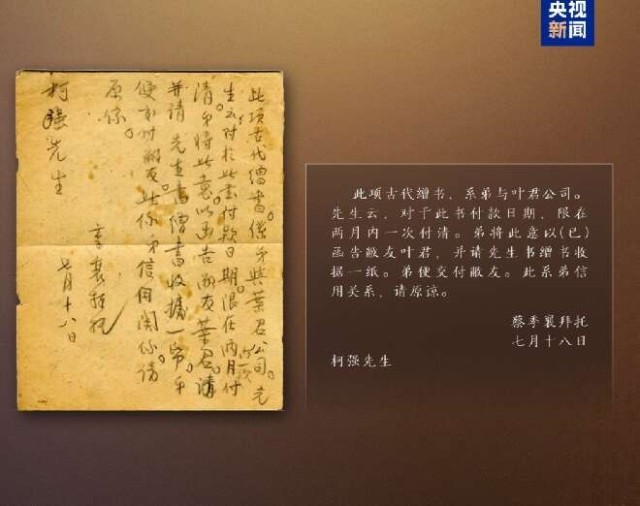 央视
新闻
此项古代缯書係弟與葉君公司。先
生云对於此書付款日期限在两月
清。弟将此意以函告敝友葉君。请
并请先生書缯書收據一帋。弟
便交付敝友。此係弟信用關係请
原諒
季襄拜托
七月十八日
柯强先生
此项古代缯书，系弟与叶君公司。
先生云，对于此书付款日期，限在
两月内一次付清。弟将此意以(已)
函告敝友叶君，并请先生书缯书收
据一纸。弟便交付敝友。此系弟信
用关系，请原谅。
蔡季襄拜托
七月十八日
柯强先生